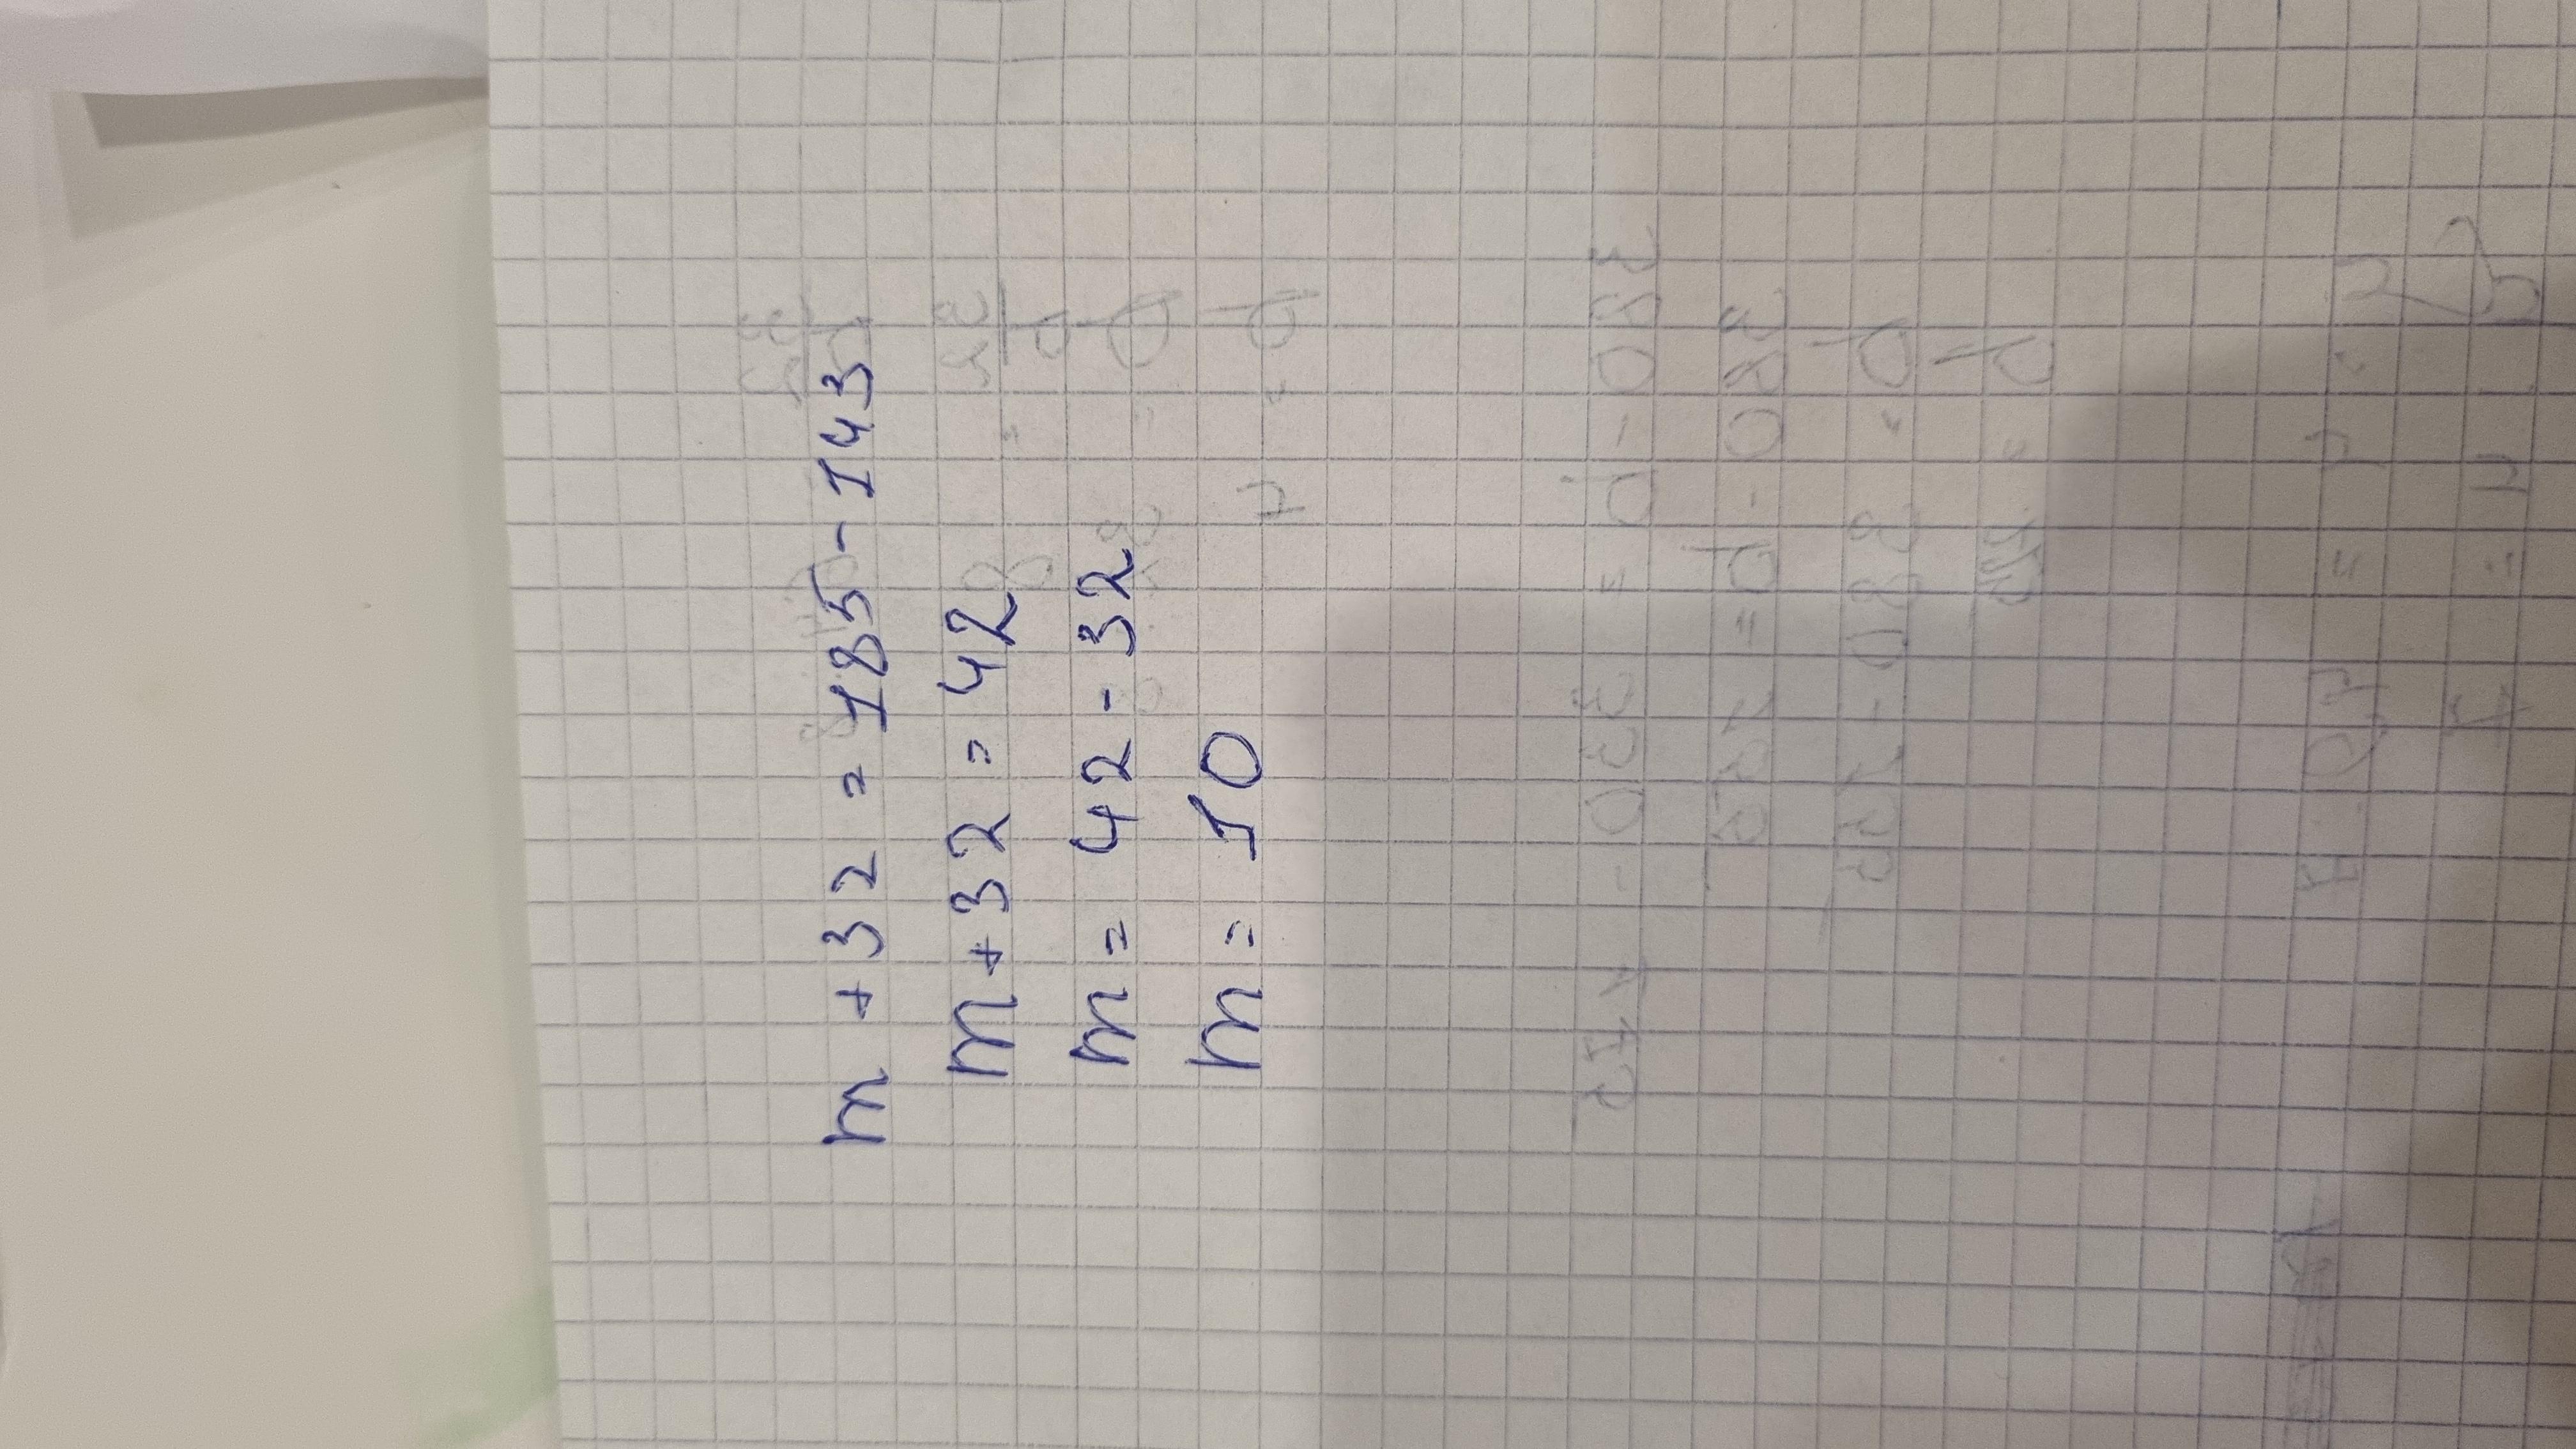 m + 32 = 185 - 143
m + 32 = 42
m = 42 - 32
m = 10